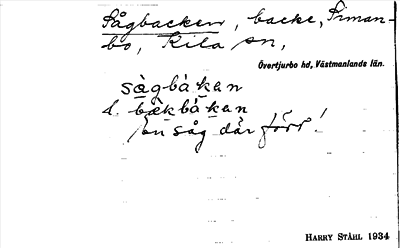 Sågbacken, backe, Siman-
bo, Kila sn,
Övertjurbo hd, Västmanlands län.
sågbákan
l. bækbákan
en såg där förr!
HARRY STÅHL 1934